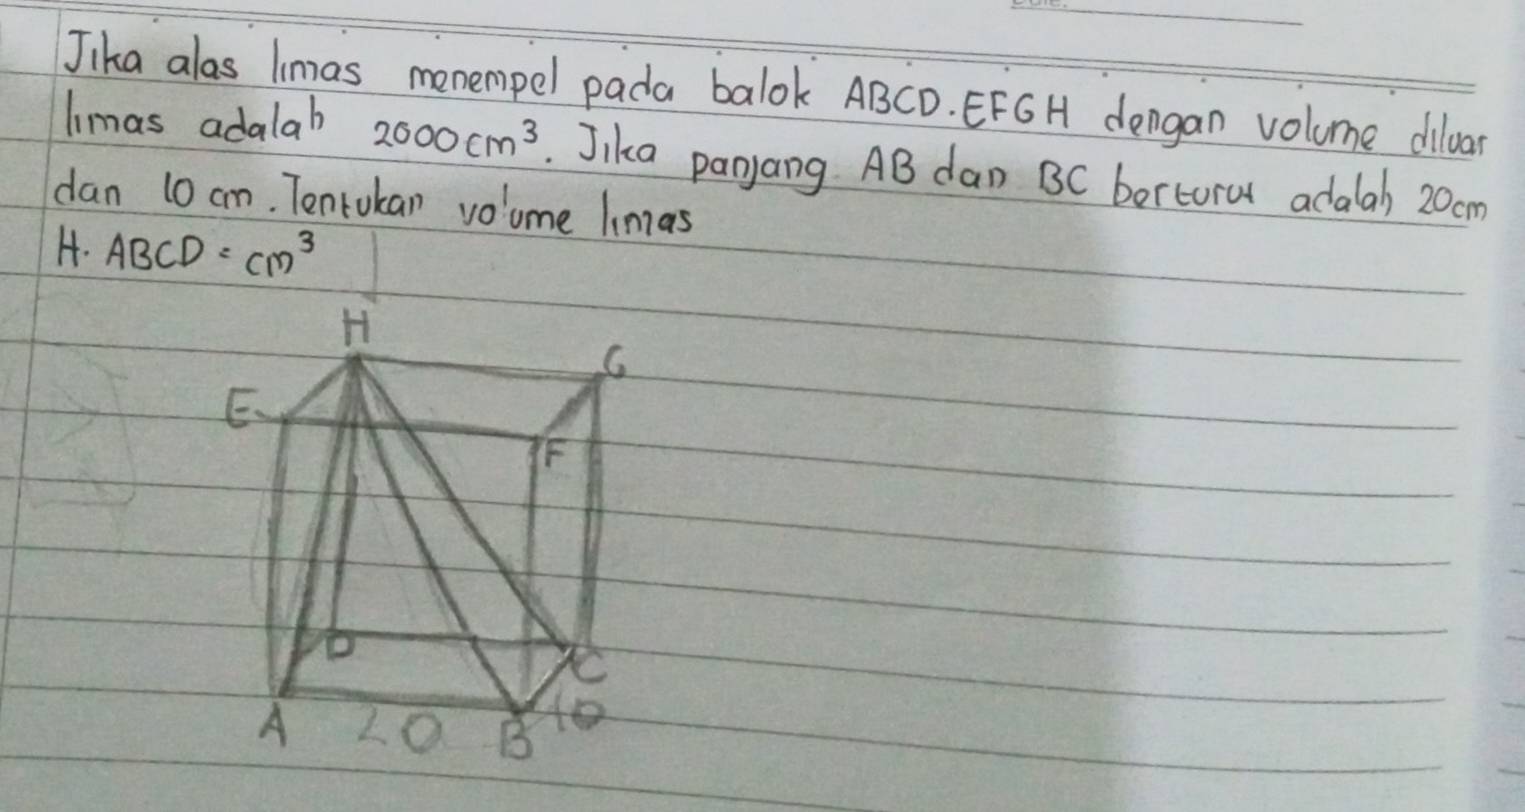 Jika alas limas menempel pada balok ABCD.EFGH dengan volume diluar
limas adalah 2000 cm³. Jika panjang AB dan BC berturut adalah 20cm
dan 10 cm. Tentukan volume limas
H. ABCD = cm³
H
G
E
F
D
C
A 20 B 10